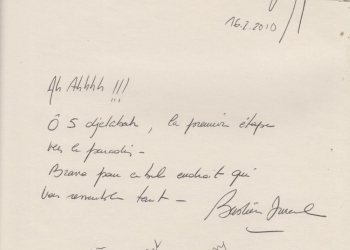 16.2.2010
Ah Ahhhh !!!
Ô 5 djellabah, la première étape
vers le paradis -
Bravo pour ce bel endroit qui
vous ressemble tant -
Bastien